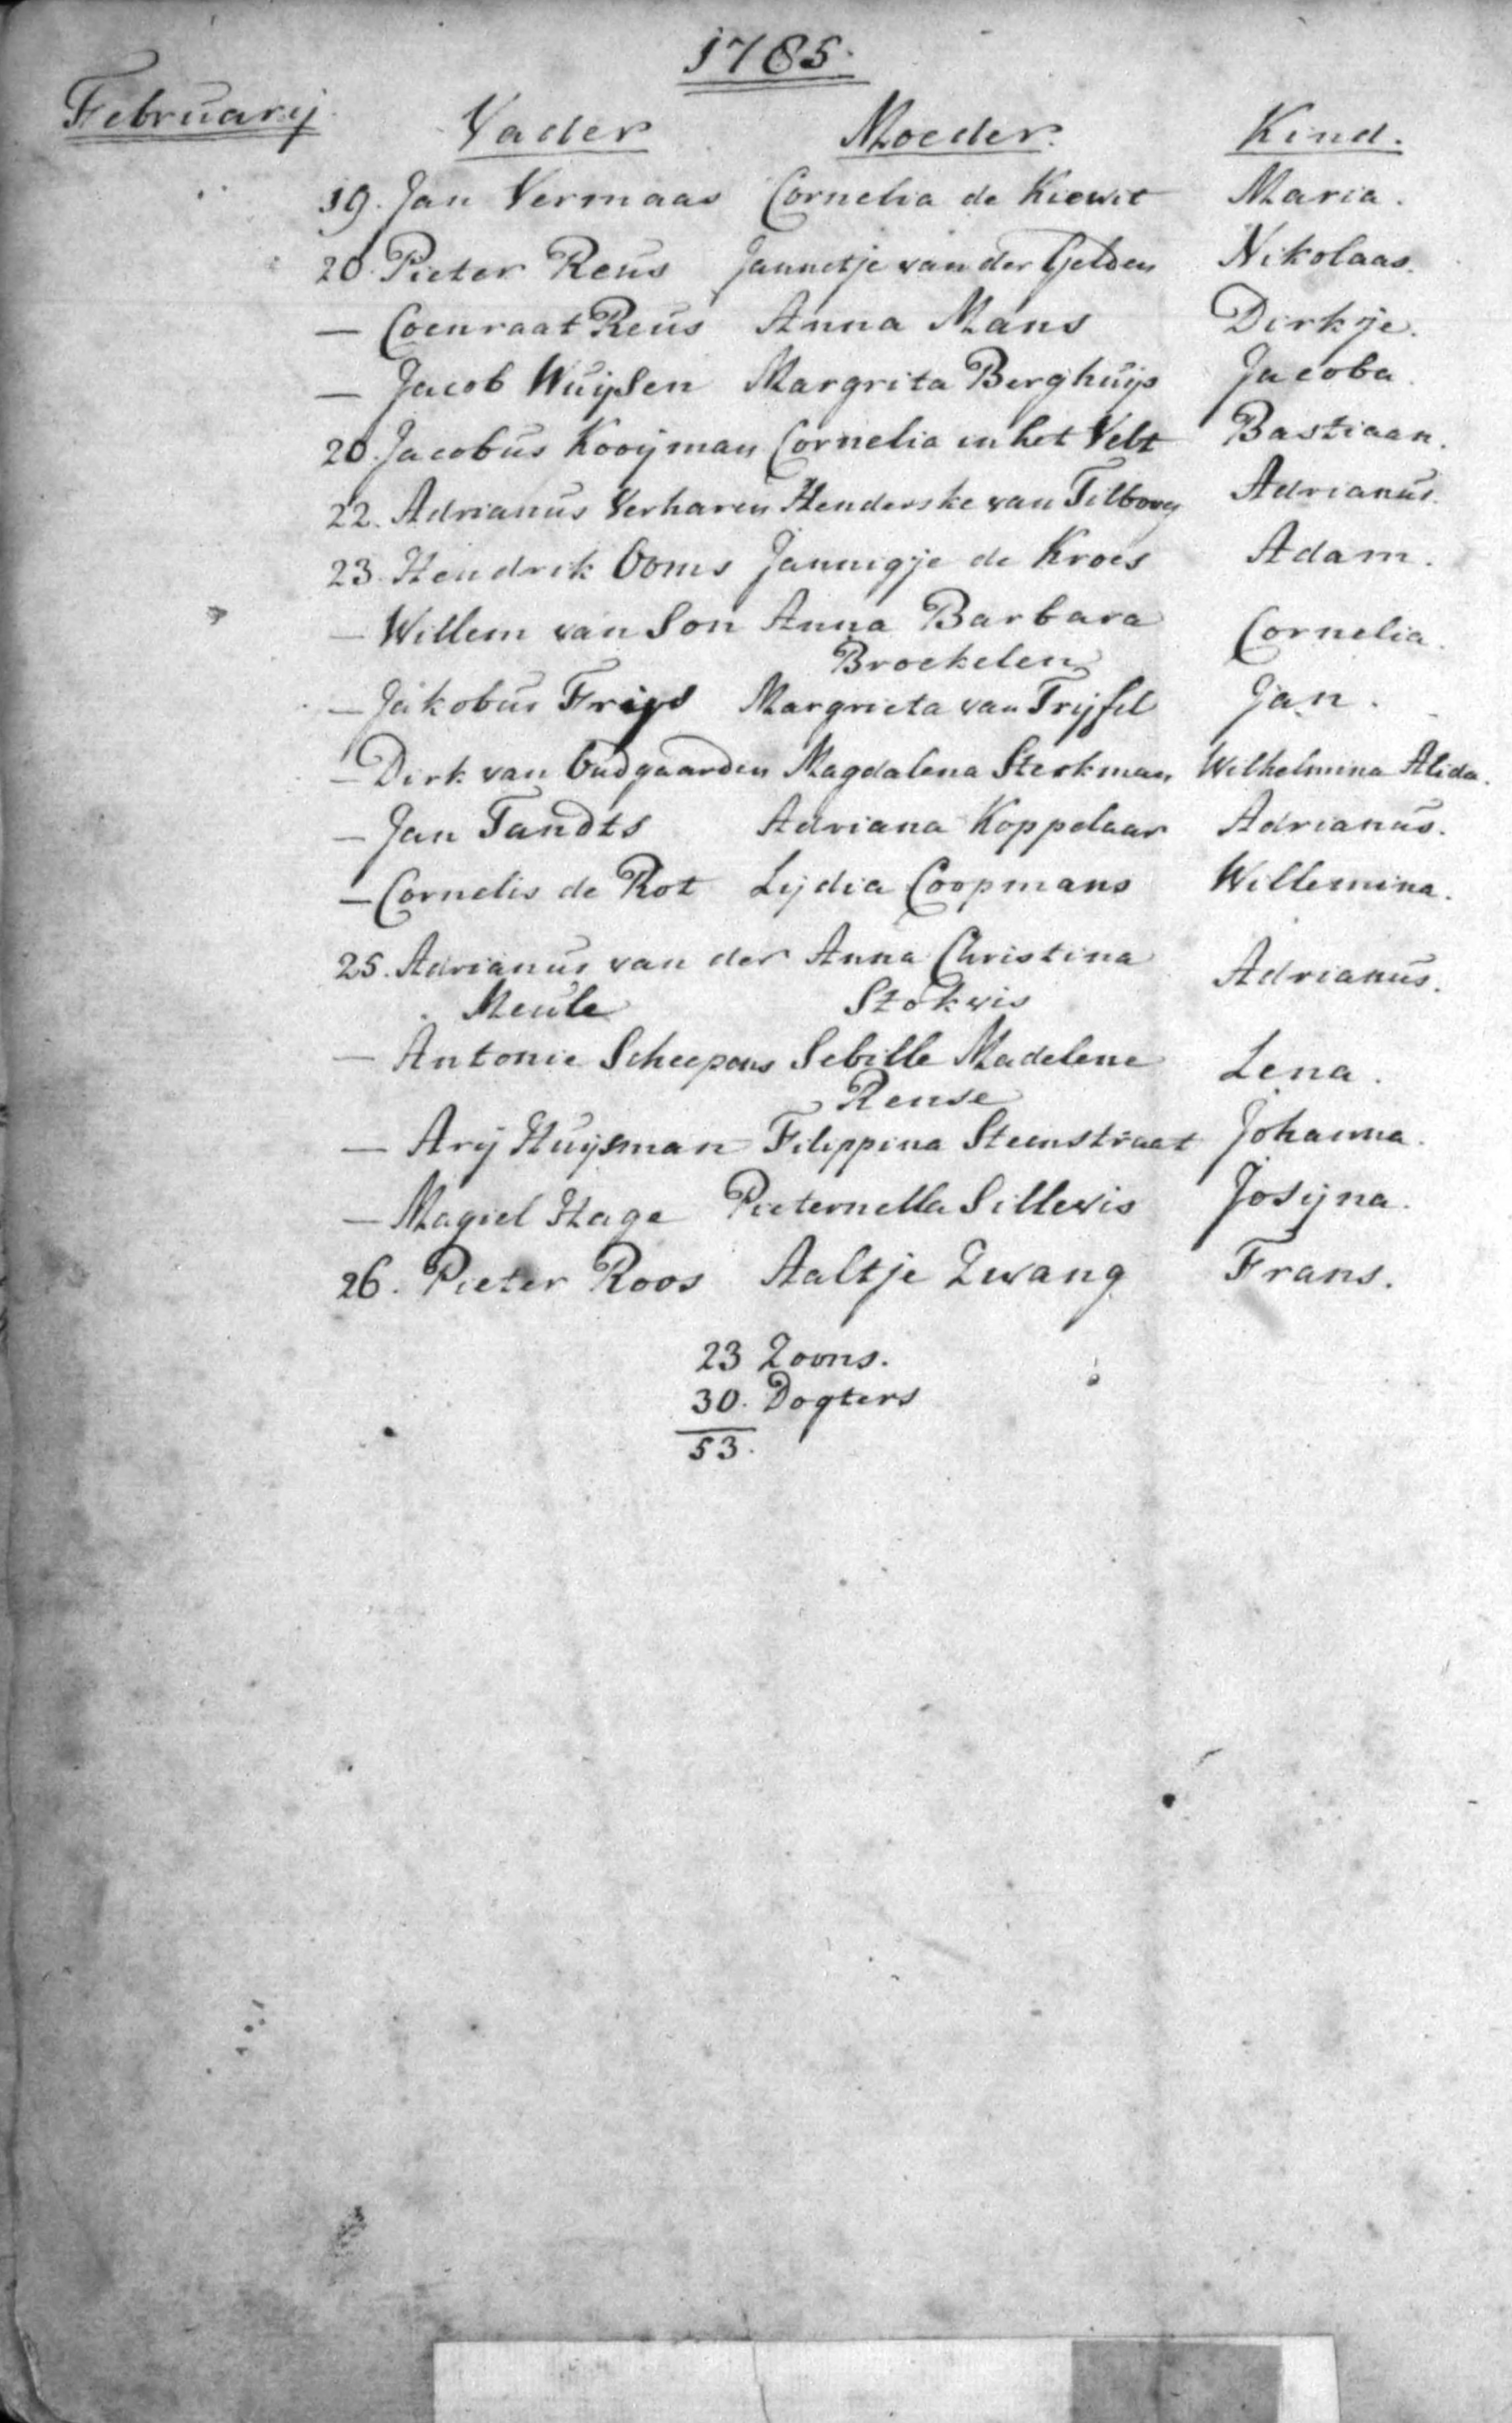 1785.
Februarij
Vader Moeder. Kind.
19. Jan Vermaas Cornelia de Kiewit Maria.
20. Pieter Reus Jannetje van der Gelden Nikolaas.
— Coenraat Reus Anna Mans Dirkje.
— Jacob Wuijsen Margrita Berghuijs Jacoba.
20. Jacobus Kooijman Cornelia in het Velt Bastiaan.
22. Adrianus Verharen Henderske van Tilborg Adrianus.
23. Hendrik Ooms Jannigje de Kroes Adam.
— Willem van Son Anna Barbara Cornelia.
Broekelen
— Jakobus Frijs Margrieta van Trijfel Jan.
— Dirk van Oudgaarden Magdalena Sterkman Wilhelmina Alida.
— Jan Tandts Adriana Koppelaar Adrianus.
— Cornelis de Rot Lijdia Coopmans Willemina.
25. Adrianus van der Anna Christina Adrianus.
Meule Stokvis
— Antonie Scheepens Sebille Madelene Lena.
Rense
— Arij Huijsman Filippina Steenstraat Johanna.
— Magiel Hage Pieternella Sillevis Josijna.
26. Pieter Roos Aaltje Zwang Frans.
23 Zoons.
30. Dogters
53.